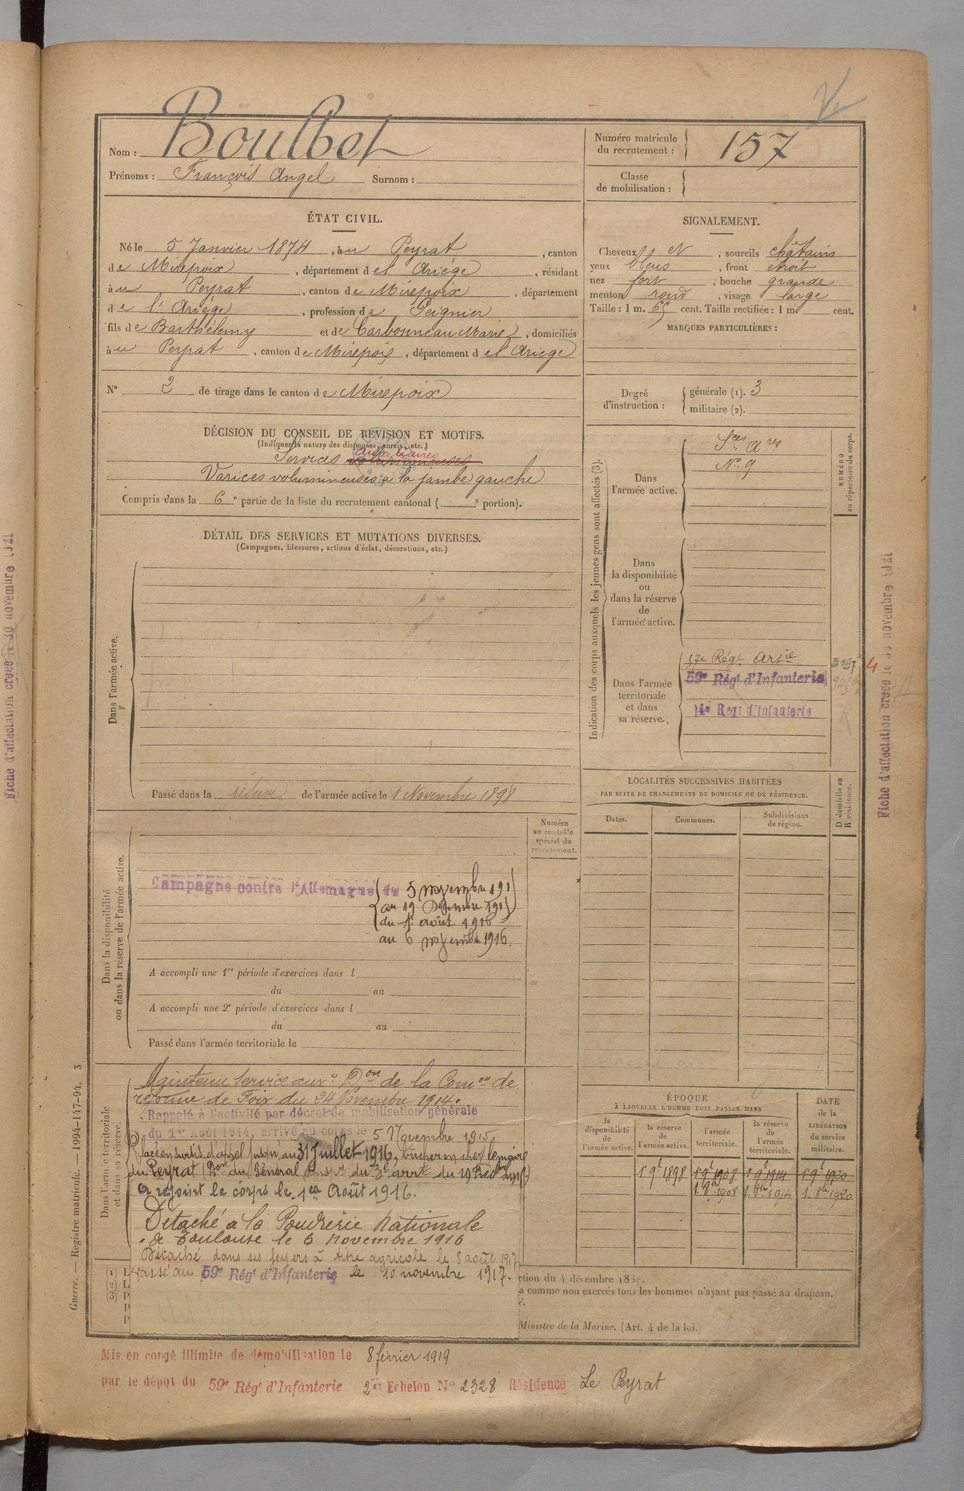 Nom : Boulbet
Prénoms : François Angel Surnom :
Numéro matricule
du recrutement : 157
Classe
de mobilisation :
ÉTAT CIVIL.
Né le 5 Janvier 1874, à u Peyrat, canton
de Mirepoix, département d el Ariége, résidant
à u Peyrat, canton de Mirepoix, département
de l'Ariége, profession de Peignier
fils de Barthélemy et de Carbonneau Marie, domiciliés
à u Peyrat, canton de Mirepoix, département d el Ariége
N° 2 de tirage dans le canton de Mirepoix
SIGNALEMENT.
Cheveux bl et N, sourcils châtains
yeux bleus, front étroit
nez fort, bouche grande
menton rond, visage large
Taille : 1 m. 65 cent. Taille rectifiée : 1 m. cent.
MARQUES PARTICULIÈRES :
Degré
d'instruction :
générale (1). 3
militaire (2).
DÉCISION DU CONSEIL DE RÉVISION ET MOTIFS.
(Indiquer la nature des dispenses, sursis, etc.)
Services auxiliaires
Varices volumineuses à la jambe gauche
Compris dans la 6e partie de la liste du recrutement cantonal ( e portion).
DÉTAIL DES SERVICES ET MUTATIONS DIVERSES.
(Campagnes, blessures, actions d'éclat, décorations, etc.)
Dans l'armée active.
Passé dans la réserve de l'armée active le 1 Novembre 1898
Indication des corps auxquels les jeunes gens sont affectés (3).
NUMÉRO
au répertoire du corps.
Dans
l'armée active.
Sces Ares
N° 9
Dans
la disponibilité
ou
dans la réserve
de
l'armée active.
Dans l'armée
territoriale
et dans
sa réserve.
17e Régt Artie
59e Régt d'Infanterie
14e Régt d'Infanterie
LOCALITÉS SUCCESSIVES HABITÉES
PAR SUITE DE CHANGEMENTS DE DOMICILE OU DE RÉSIDENCE.
Dates.
Communes.
Subdivisions
de région.
D domicile ou
R résidence.
Numéro
au contrôle
spécial du
recrutement.
Dans la disponibilité
ou dans la réserve de l'armée active.
Campagne contre l'Allemagne du 5 novembre 191
au 19 Décembre 191
du 1er août 1916
au 6 novembre 1916.
A accompli une 1re période d'exercices dans l
du au
A accompli une 2e période d'exercices dans l
du au
Passé dans l'armée territoriale le
Dans l'armée territoriale
et dans sa réserve.
Maintenu Service auxre Don de la Comon de
réforme de Foix du 24 Novembre 1914.
Rappelé à l'activité par décret de mobilisation générale
du 1er Août 1914, arrivé au corps le 5 Novembre 1915
au 31 Juillet 1916, bûcheron chez le maire
du Peyrat
A rejoint le corps le 1er Août 1916.
Détaché à la Poudrerie Nationale
de Toulouse le 6 novembre 1916
Détaché dans ses foyers à titre agricole le 8 août 1917
Passé au 59e Régt d'Infanterie le 10 novembre 1917.
ÉPOQUE
À LAQUELLE L'HOMME DOIT PASSER DANS
la
disponibilité
de
l'armée active.
la réserve
de
l'armée active.
l'armée
territoriale.
la réserve
de
l'armée
territoriale.
DATE
de la
LIBÉRATION
du service
militaire.
1 9e 1898 1 9e 1908 1 9e 1914 1 9e 1920
1 8bre 1908 1 8bre 1914 1 8bre 1920
ction du 4 décembre 18
a comme non exercés tous les hommes n'ayant pas passé au drapeau.
Ministre de la Marine. (Art. 4 de la loi.)
Mis en congé illimité de démobilisation le 8 février 1919
par le dépôt du 59e Régt d'Infanterie 2e Echelon N° 2328 Résidence Le Peyrat
Guerre. — Registre matricule. — 1994-147-94. 3
Fiche d'affectation créée le 30 novembre 1921